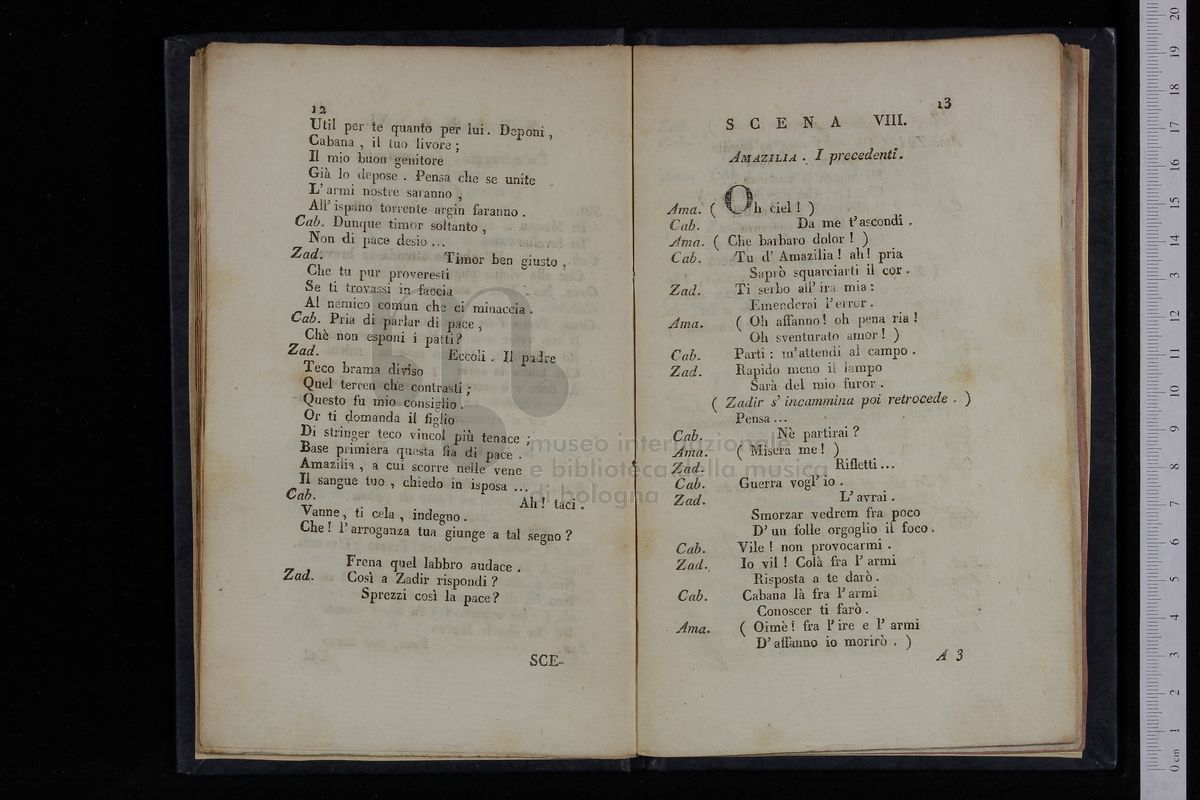 12
Util per te quanto per lui. Deponi,
Cabana, il tuo livore;
Il mio buon genitore
Già lo depose. Pensa che se unite
L'armi nostre saranno,
All'ispano torrente argin faranno.
Cab. Dunque timor soltanto,
Non di pace desio...
Zad. Timor ben giusto,
Che tu pur proveresti
Se ti trovassi in faccia
Al nemico comun che ci minaccia.
Cab. Pria di parlar di pace,
Chè non esponi i patti?
Zad. Eccoli. Il padre
Teco brama diviso
Quel terren che contrasti;
Questo fu mio consiglio.
Or ti domanda il figlio
Di stringer teco vincol più tenace;
Base primiera questa sia di pace.
Amazilia, a cui scorre nelle vene
Il sangue tuo, chiedo in isposa...
Cab. Ah! taci.
Vanne, ti cela, indegno.
Che! l'arroganza tua giunge a tal segno?
Frena quel labbro audace.
Zad. Così a Zadir rispondi?
Sprezzi così la pace?
SCE-
13
SCENA VIII.
AMAZILIA. I precedenti.
Ama. ( Oh ciel! )
Cab. Da me t'ascondi.
Ama. ( Che barbaro dolor! )
Cab. Tu d'Amazilia! ah! pria
Saprò squarciarti il cor.
Zad. Ti serbo all'ira mia:
Emenderai l'error.
Ama. ( Oh affanno! oh pena ria!
Oh sventurato amor! )
Cab. Parti: m'attendi al campo.
Zad. Rapido meno il lampo
Sarà del mio furor.
( Zadir s'incammina poi retrocede. )
Pensa...
Cab. Nè partirai?
Ama. ( Misera me! )
Zad. Rifletti...
Cab. Guerra vogl'io.
Zad. L'avrai.
Smorzar vedrem fra poco
D'un folle orgoglio il foco.
Cab. Vile! non provocarmi.
Zad. Io vil! Colà fra l'armi
Risposta a te darò.
Cab. Cabana là fra l'armi
Conoscer ti farò.
Ama. ( Oimè! fra l'ire e l'armi
D'affanno io morirò. )
A 3
museo internazionale
e biblioteca della musica
di bologna
0 cm 1 2 3 4 5 6 7 8 9 10 11 12 13 14 15 16 17 18 19 20